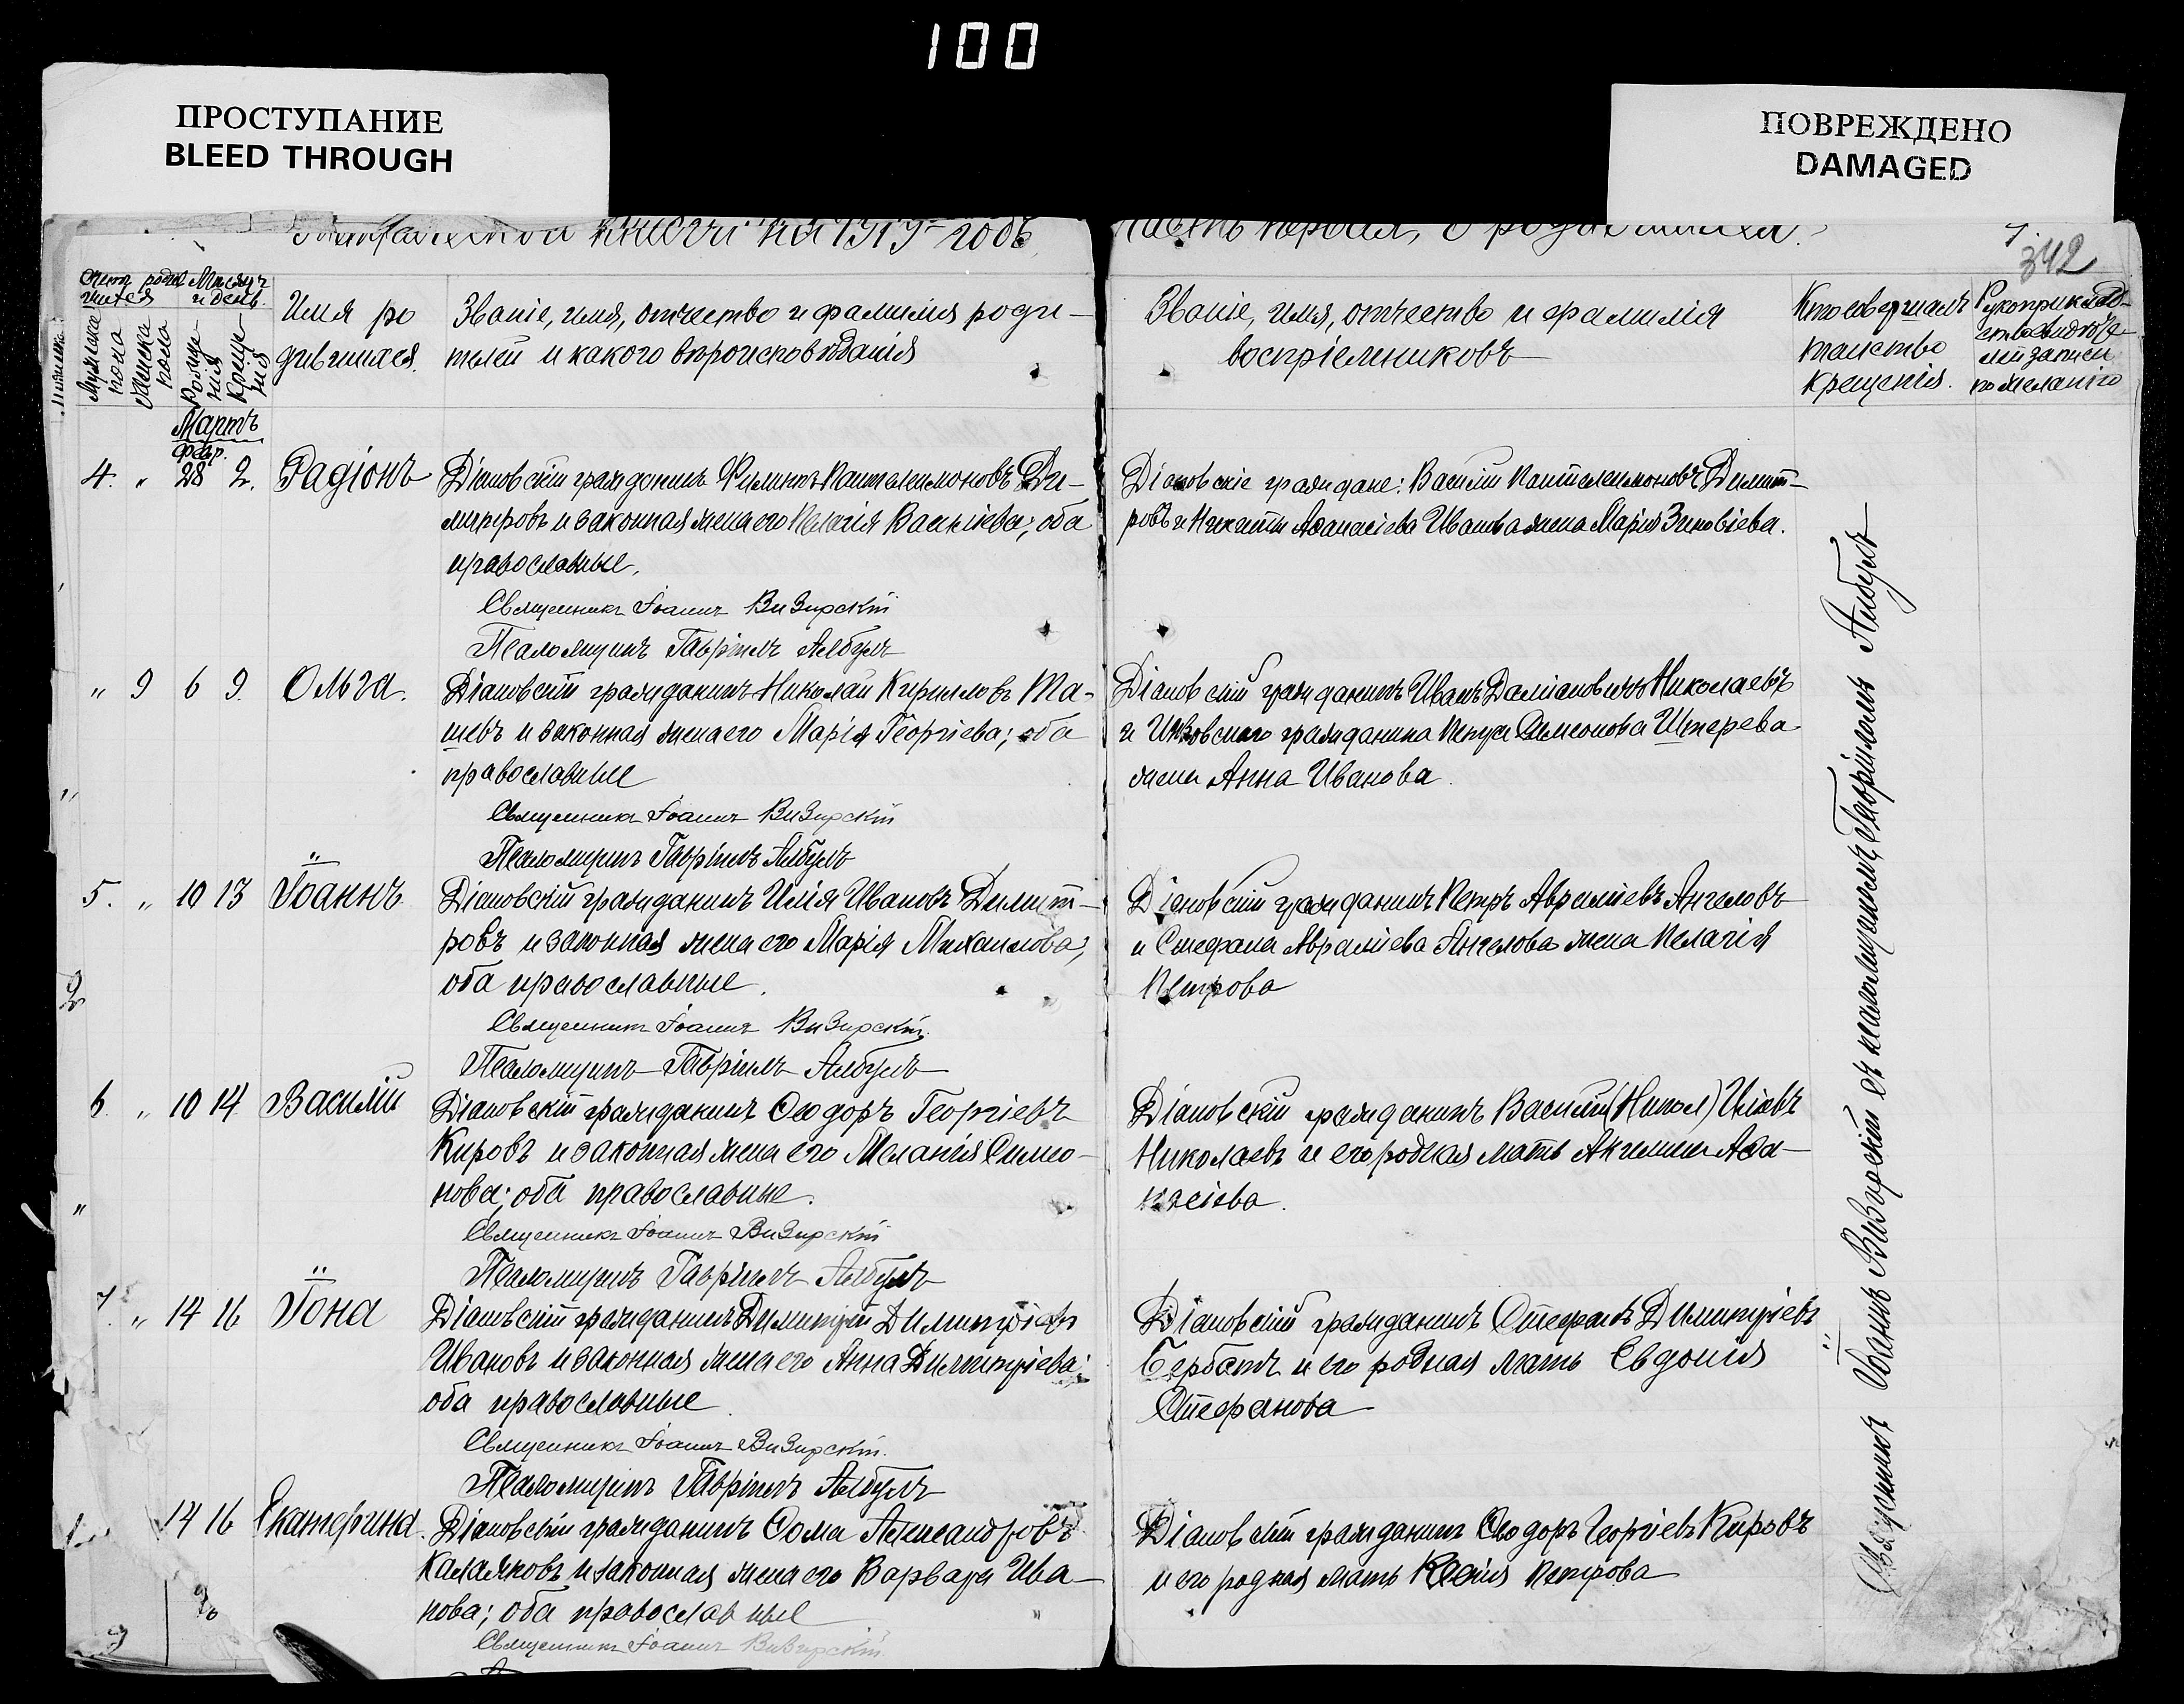 100
ПРОСТУПАНИЕ
BLEED THROUGH
ПОВРЕЖДЕНО
DAMAGED
книги на 1919 годъ
Часть первая, о родившихся.
342
Счетъ родив
шихся
Мѣсяцъ
и день.
Мужска
пола
Женска
пола
Рожде
нія
Креще
нія
Имя ро
дившихся.
Званіе, имя, отчество и фамилія роди-
телей и какого вѣроисповѣданія
Званіе, имя, отчество и фамилія
воспріемниковъ
Кто совершалъ
таинство
крещенія.
Рукоприклад-
ство свидѣте
лей записи
по желанію
Мартъ
Февр.
4. " 28 2. Радіонъ
Діановскій гражданинъ Филиппъ Пантелеимоновъ Ди-
митровъ и законная жена его Пелагія Васильева; оба
православные.
Священникъ Іоаннъ Визирскій
Псаломщикъ Гавріилъ Албулъ
Діановскіе граждане: Василій Пантелеимоновъ Димит-
ровъ и Аѳанасіева Иванова жена Марія Зиновіева.
" 9 6 9. Ольга.
Діановскій гражданинъ Николай Кирилловъ Та-
шевъ и законная жена его Марія Георгіева; оба
православные
Священникъ Іоаннъ Визирскій
Псаломщикъ Гавріилъ Албулъ
Діановскій гражданинъ Иванъ Даміановичъ Николаевъ
и гражданина Петра Симеонова Штерева
жена Анна Иванова.
5. " 10 13 Іоаннъ
Діановскій гражданинъ Илія Ивановъ Димит-
ровъ и законная жена его Марія Михаилова;
оба православные.
Священникъ Іоаннъ Визирскій.
Псаломщикъ Гавріилъ Албулъ
Діановскій гражданинъ Петръ Авраміевъ Ангеловъ
и Стефана Авраміева Ангелова жена Пелагія
Петрова
2
6. " 10 14 Василій
Діановскій гражданинъ Ѳеодоръ Георгіевъ
Кировъ и законная жена его Меланія Симео-
нова; оба православные.
Священникъ Іоаннъ Визирскій
Псаломщикъ Гавріилъ Албулъ
Діановскій гражданинъ Василій (Никол) Иліевъ
Николаевъ и его родная мать Ангелина Аѳа-
насіева.
7. " 14 16 Іона
Діановскій гражданинъ Димитрій Димитріевъ
Ивановъ и законная жена его Анна Димитріева;
оба православные.
Священникъ Іоаннъ Визирскій.
Псаломщикъ Гавріилъ Албулъ
Діановскій гражданинъ Стефанъ Димитріевъ
и его родная мать Евдокія
Стефанова
14 16 Екатерина.
Діановскій гражданинъ Ѳома Александровъ
Калаяновъ и законная жена его Варвара Ива-
нова; оба православные
Священникъ Іоаннъ Визирскій.
Діановскій гражданинъ Ѳеодоръ Георгіевъ Кировъ
и его родная мать Ксенія Петрова
Священникъ Іоаннъ Визирскій съ псаломщикомъ Гавріиломъ Албулъ